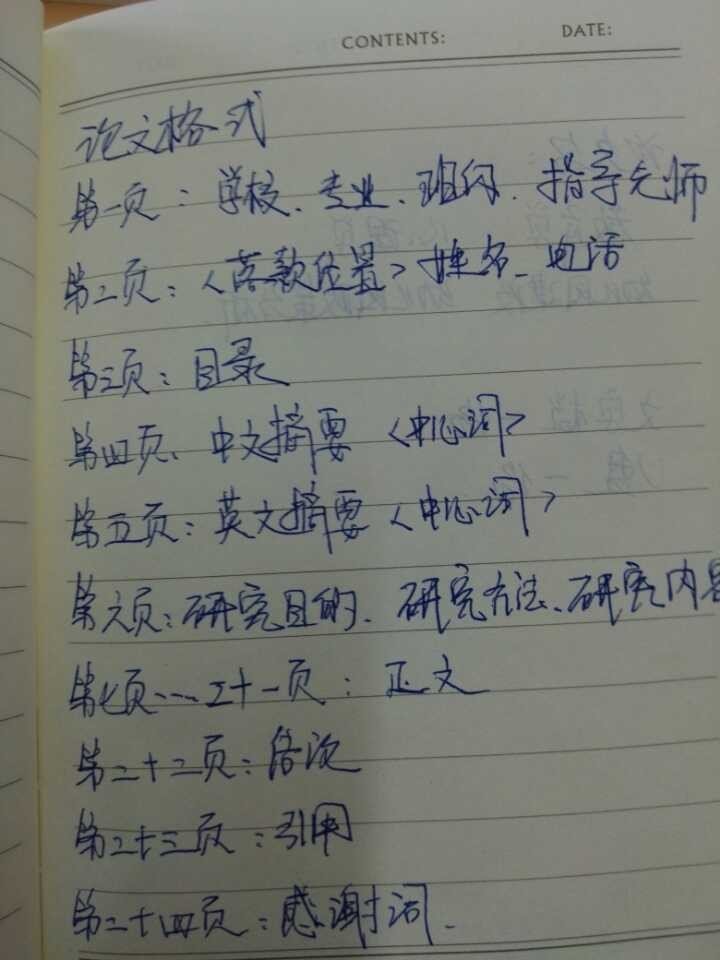 CONTENTS: DATE:
论文格式
第一页：学校、专业、班级、指导老师
第二页：<落款位置> 姓名、电话
第三页：目录
第四页、中文摘要 <中心词>
第五页：英文摘要 <中心词>
第六页：研究目的、研究方法、研究内容
第七页……二十一页：正文
第二十二页：
第二十三页：引用
第二十四页：感谢词.